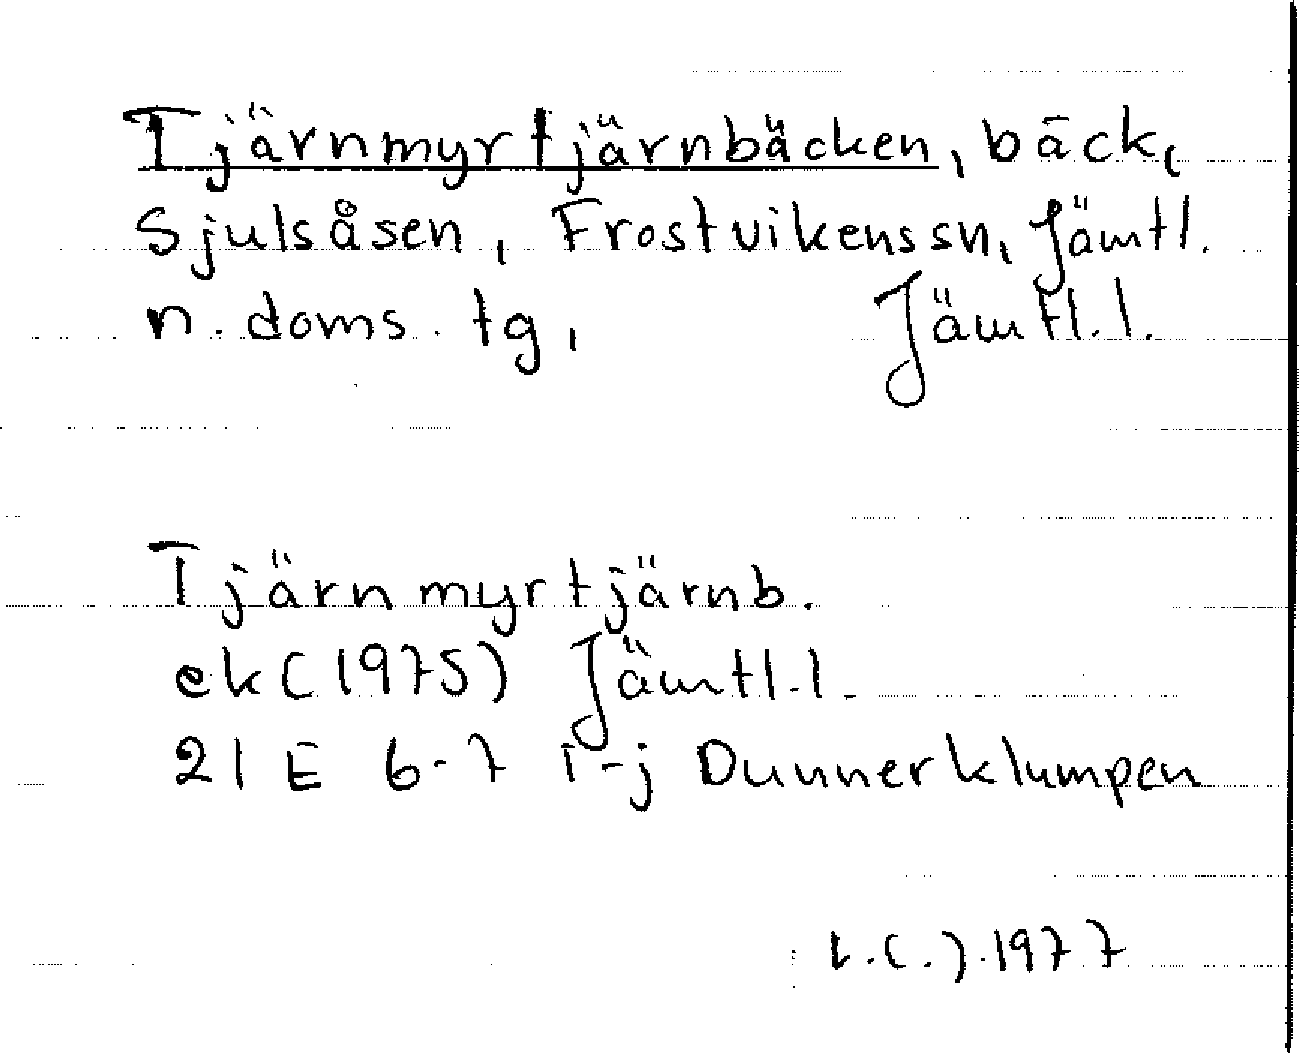 Tjärnmyrtjärnbäcken, bäck,
Sjulsåsen, Frostvikens sn, Jämtl.
n. doms. tg, Jämtl. l.
Tjärnmyrtjärnb.
ek (1975) Jämtl. l.
21 E 6-7 i-j Dunnerklumpen
1977